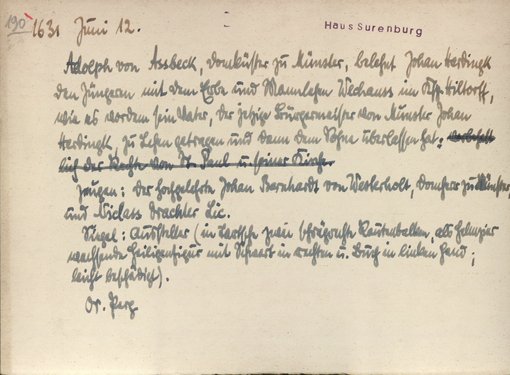 190
1631 Juni 12.
Haus Surenburg
Adolph von Assbeck, Domküster zu Münster, belehnt Johan Herdingk
den Jüngeren mit dem Erbe und Mannlehen Wechauss im Ksp. Hiltorff,
wie es vordem sein Vater, der jetzige Bürgermeister von Münster Johan
Herdingk, zu Lehen getragen und dann dem Sohne überlassen hat; vorbehalt-
lich der Rechte von St. Paul u. seiner Kirche.
Zeugen: der hochgelehrte Johan Bernhardt von Westerholt, Domherr zu Münster,
und Niclass Drachter Lic.
Siegel: Aussteller (in Tartsche zwei schrägrechte Rautenbalken, als Helmzier
wachsende Heiligenfigur mit Schwert in rechten u. Buch in linken Hand;
leicht beschädigt).
Or. Perg.